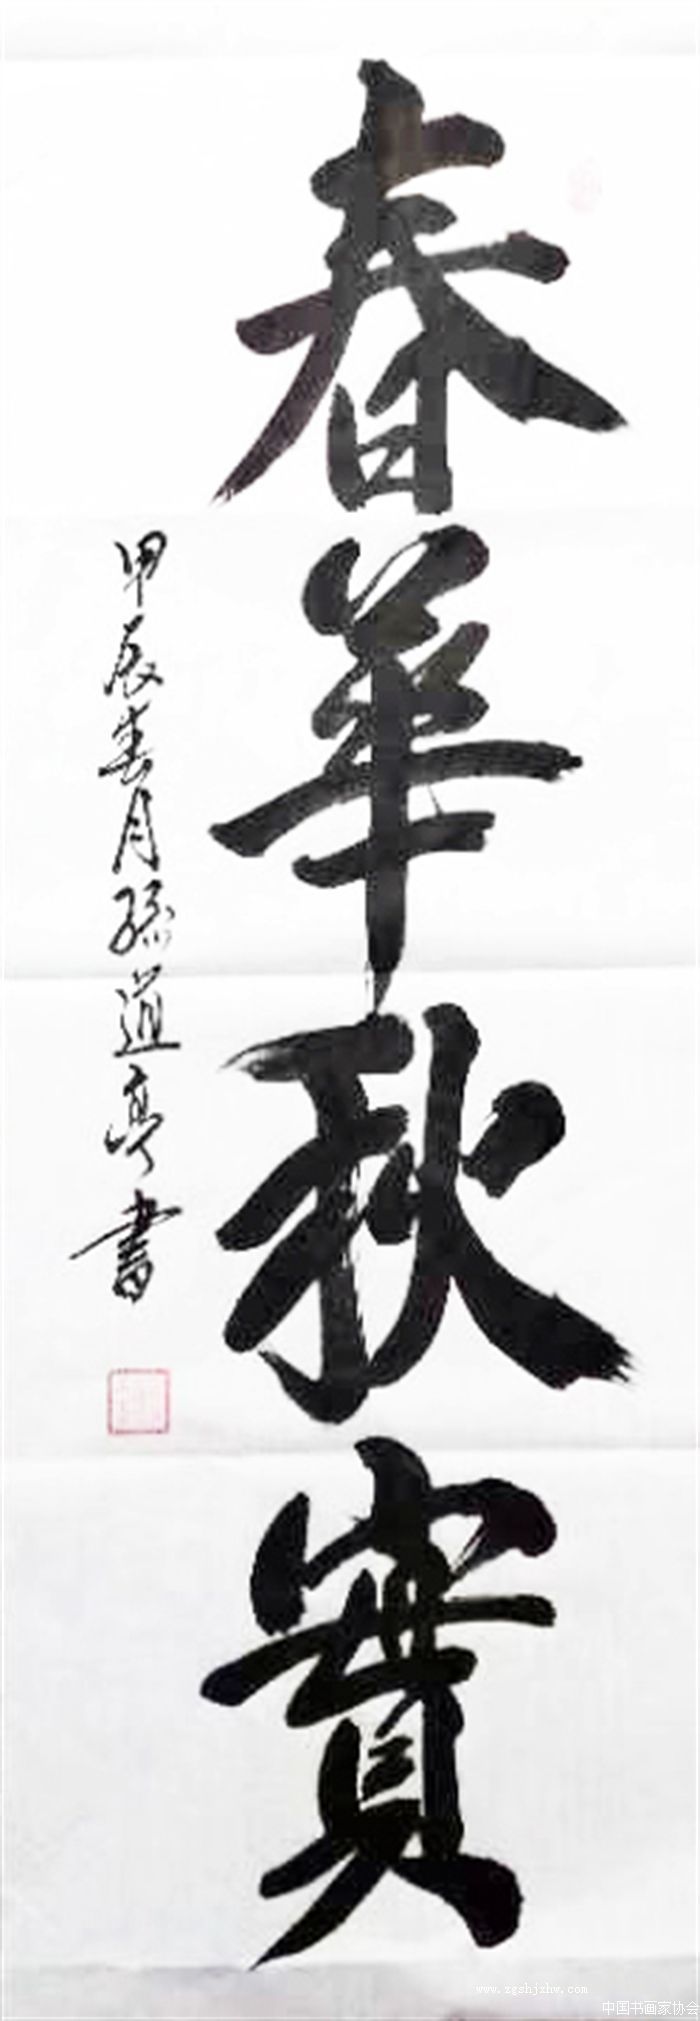 春華秋實
甲辰春月孫道亭書
www.zgshjzhw.com
中国书画家协会